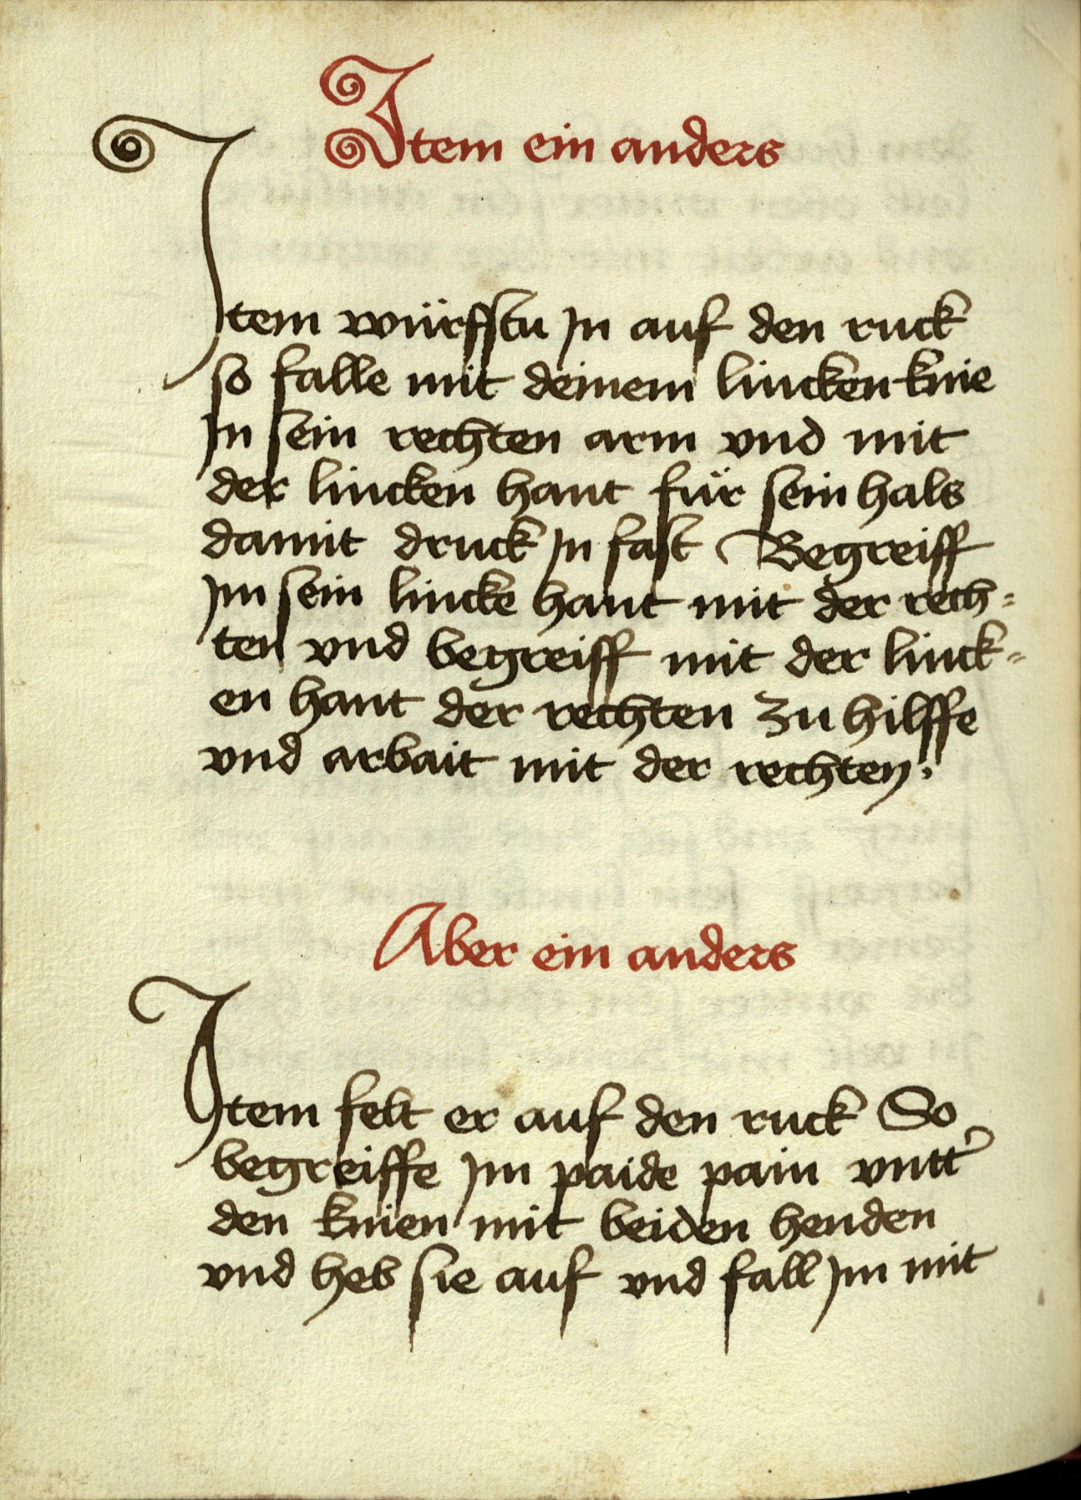 Item ein anders
Item würffstu jn auf den ruck
so falle mit deinem lincken knie
jn sein rechten arm vnd mit
der lincken hant für sein hals
damit druck jn fast Begreiff
jm sein lincke hant mit der rech=
ten vnd begreiff mit der linck=
en hant der rechten zu hilffe
vnd arbait mit der rechten.
Aber ein anders
Item felt er auf den ruck So
begreiffe jm paide pain vntt'
den knien mit beiden henden
vnd heb sie auf vnd fall jm mit